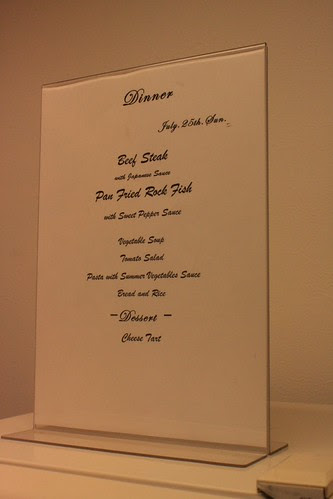 Dinner
July. 25th. Sun.
Beef Steak
with Japanese Sauce
Pan Fried Rock Fish
with Sweet Pepper Sauce
Vegetable Soup
Tomato Salad
Pasta with Summer Vegetables Sauce
Bread and Rice
— Dessert —
Cheese Tart